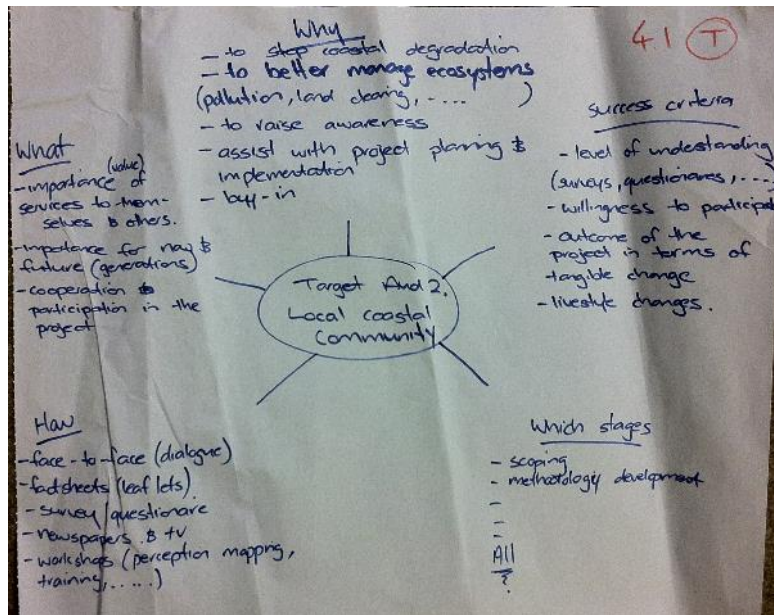 Why
- to stop coastal degradation
- to better manage ecosystems
(pollution, land clearing, ..... )
- to raise awareness
- assist with project planning &
implementation
- buy-in
41 T
What
(value)
- importance of
services to them-
selves & others.
- importance for now &
future (generations)
- cooperation &
participation in the
project
success criteria
- level of understanding
(surveys, questionares, ....
- willingness to participat
- outcome of the
project in terms of
tangible change
- livestyle changes.
Target Aud 2.
Local coastal
Community
How
- face-to-face (dialogue)
- factsheets (leaf lets)
- survey/questionare
- newspapers & tv
- workshops (perception mapping,
training, .....)
Which stages
- scoping
- methodology development
-
-
-
All
?